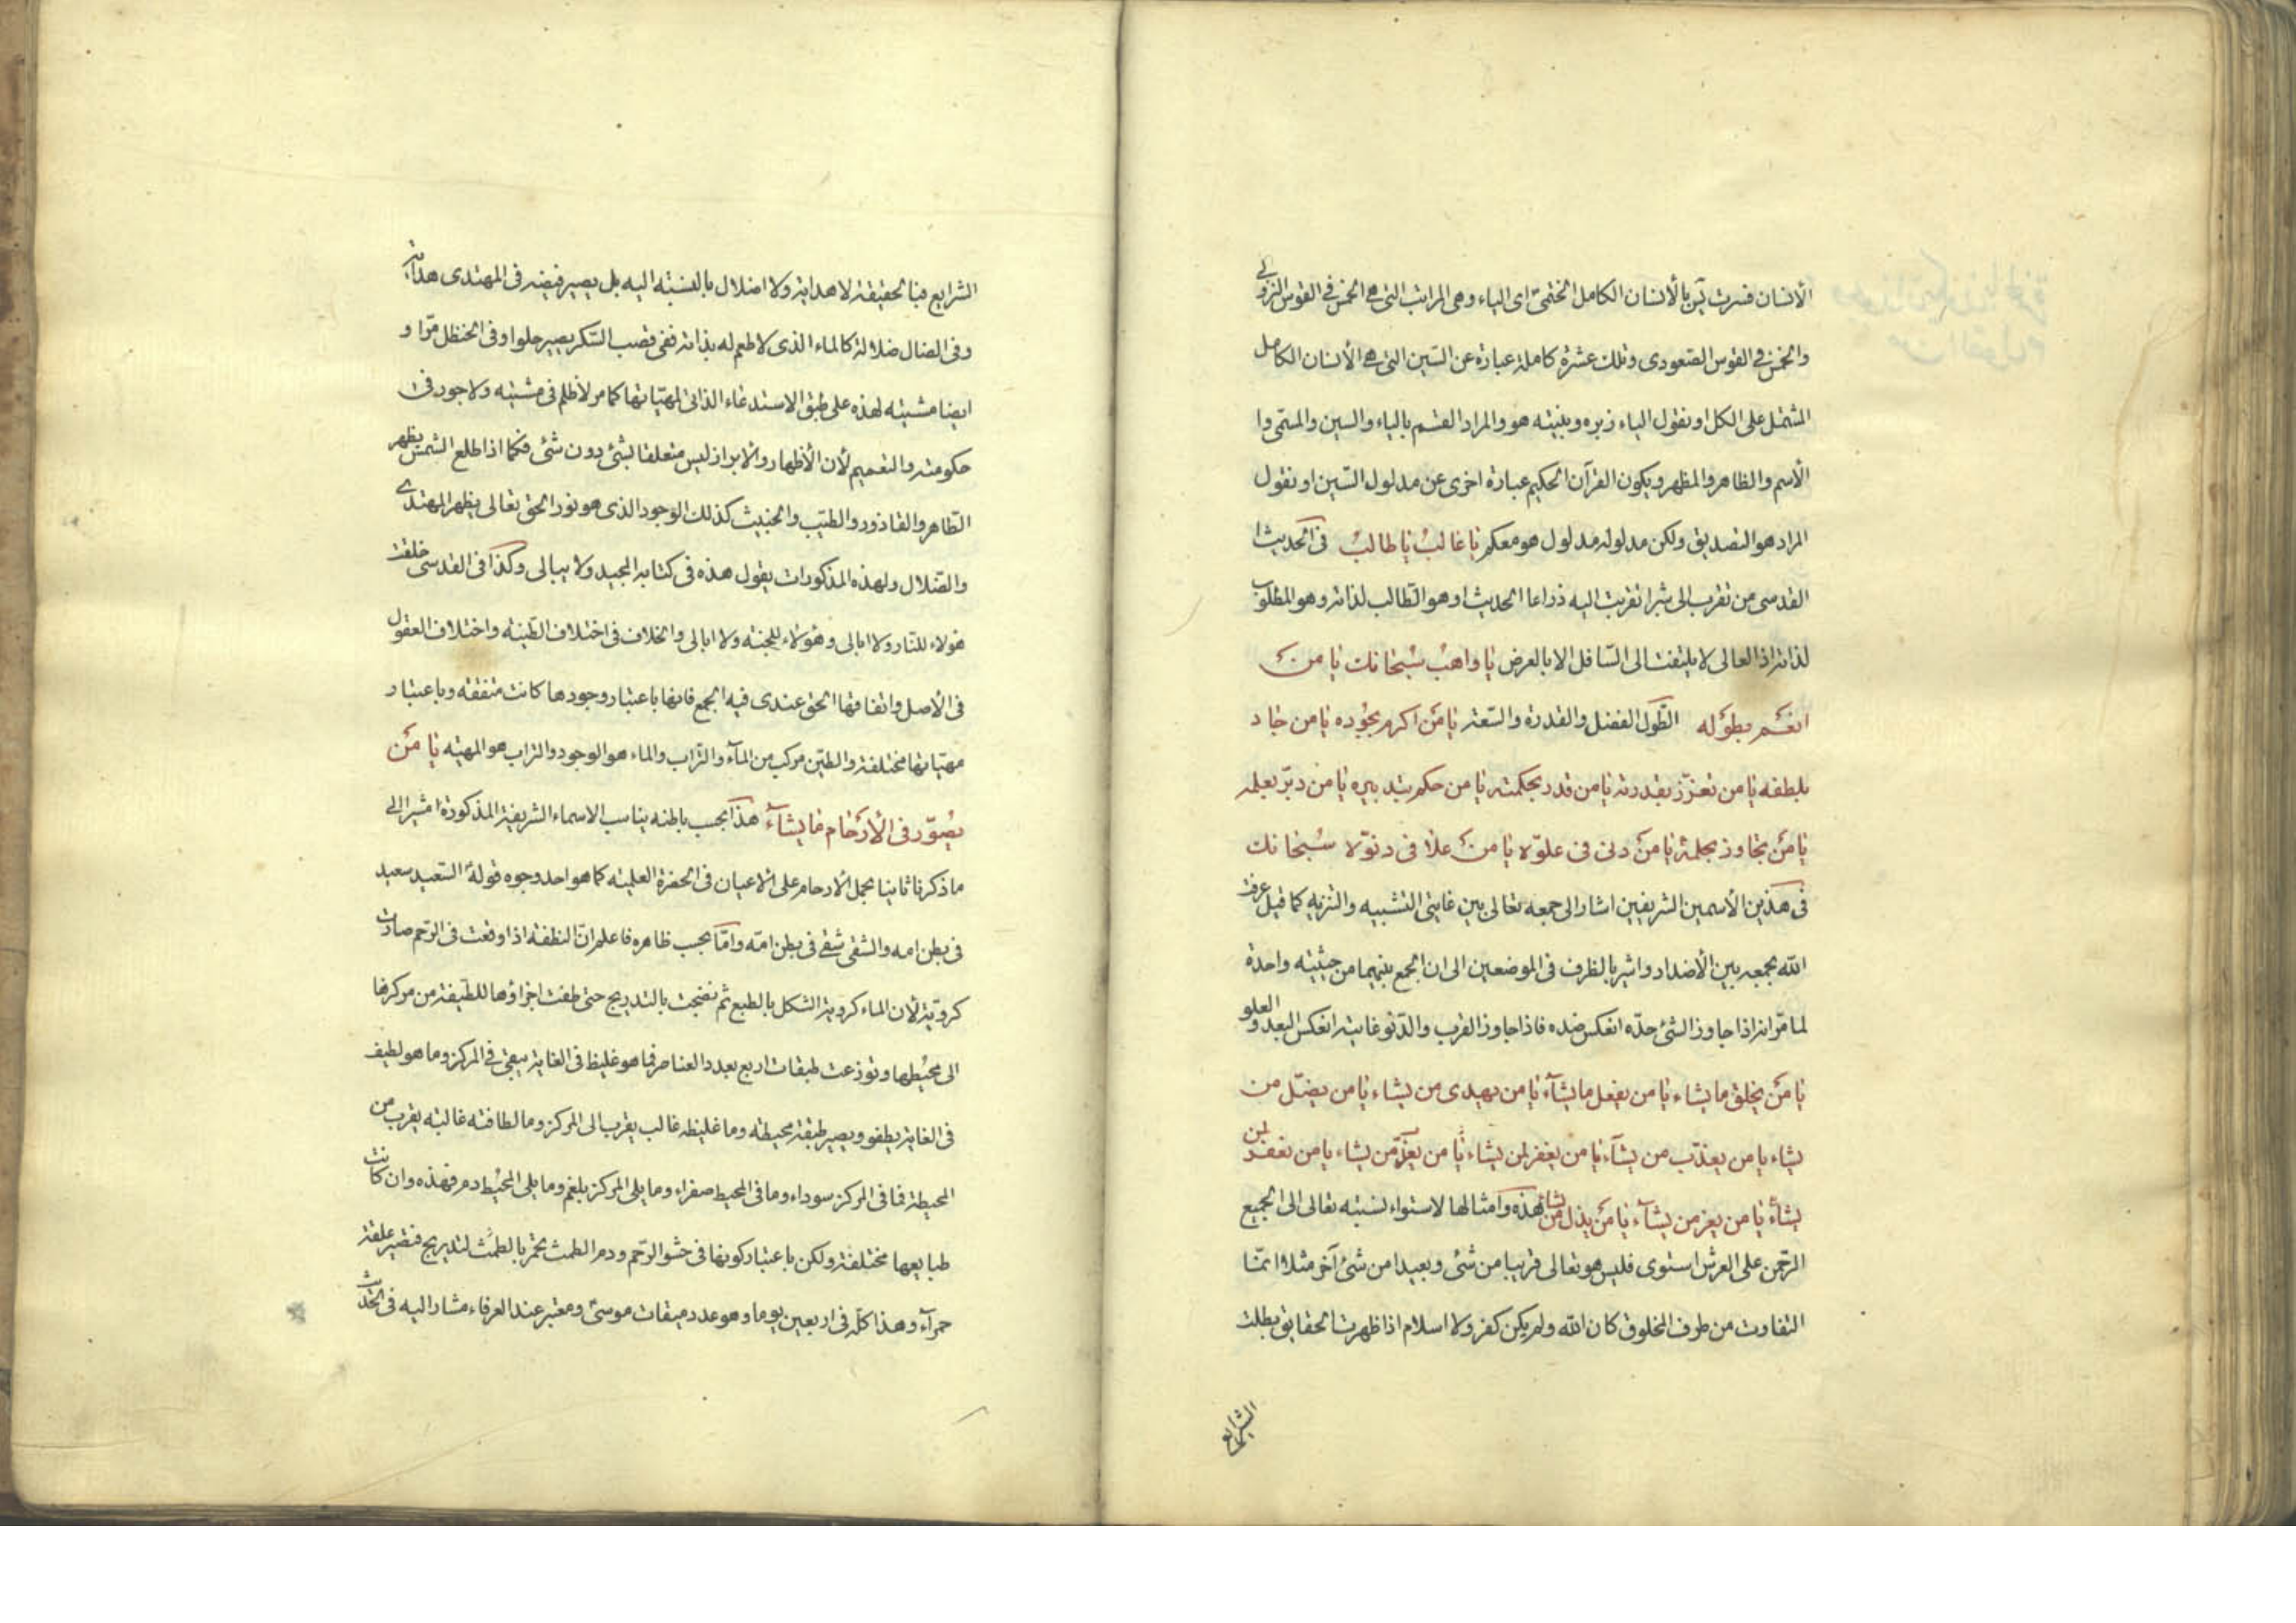 الأنسان فسرت يس بالأنسان الكامل الختمى اى الياء وهى المراتب التى هى الخمس فى القوس النزولى
والخمس فى القوس الصعودى وتلك عشرة كاملة عبارة عن السين التى هى الأنسان الكامل
المشتمل على الكل او نقول الياء زبره وبينته هو والمراد القسم بالياء والسين والمسمى وا
الأسم والظاهر والمظهر ويكون القرآن الحكيم عبارة اخرى عن مدلول السين او نقول
المراد هو التصديق ولكن مدلوله مدلول هو معكم يا غالب يا طالب فى الحديث ا
القدسى من تقرب الى شبرا تقربت اليه ذراعا الحديث او هو الطالب لذاته وهو المطلوب
لذاته اذ العالى لا يلتفت الى السافل الا بالعرض يا واهب سبحانك يا من
انعم بطوله الطول الفضل والقدرة والسعة يا من اكرم بجوده يا من جاد
بلطفه يا من تعزز بقدرته يا من قدر بحكمته يا من حكم بتدبيره يا من دبر بعلمه
يا من تجاوز بحلمه يا من دنى فى علوه يا من علا فى دنوه سبحانك
فى هذين الأسمين الشريفين اشار الى جمعه تعالى بين غايتى التشبيه والتنزيه كما قيل عرفت
الله بجمعه بين الأضداد واشير بالظرف فى الموضعين الى ان الجمع بينهما من حيثية واحدة
لما مر انه اذا جاوز الشئ حده انعكس ضده فاذا جاوز القرب والدنو غايته انعكس البعد والعلو
يا من يخلق ما يشاء يا من يفعل ما يشآء يا من يهدى من يشاء يا من يضل من
يشاء يا من يعذب من يشآء يا من يغفر لمن يشاء يا من يعز من يشاء يا من يغفر لمن
يشآء يا من يعز من يشآء يا من يذل من يشاء هذه وامثالها لاستواء نسبته تعالى الى الجميع
الرحمن على العرش استوى فليس هو تعالى قريبا من شئ وبعيدا من شئ آخر مثلا انما
التفاوت من طرف المخلوق كان الله ولم يكن كفر ولا اسلام اذا ظهرت الحقايق بطلت
الشرايع
الشرايع فبالحقيقة لا هداية ولا اضلال بالنسبة اليه بل يصير فيضه فى المهتدى هداية
وفى الضال ضلالة كالماء الذى لا طعم له بذاته ففى قصب السكر يصير حلوا وفى الحنظل مرا و
ايضا مشيته لهذه على طبق الاستدعاء الذاتى لمهياتها كما مر لا ظلم فى مشيته ولا جور فى
حكومته والتعميم لأن الأظهار والأبراز ليس متعلقا بشئ دون شئ فكما اذا طلع الشمس يظهر
الطاهر والقاذور والطيب والخبيث كذلك الوجود الذى هو نور الحق تعالى يظهر المهتدى
والضلال ولهذه المذكورات يقول هذه فى كتابه المجيد ولا يبالى وكذا فى القدسى خلقت
هؤلاء للنار ولا ابالى وهؤلاء للجنة ولا ابالى والخلاف فى اختلاف الطينة واختلاف العقول
فى الأصل واتفاقها الحق عندى فيه الجمع فانها باعتبار وجودها كانت متفقة وباعتبار
مهياتها مختلفة والطين مركب من المآء والتراب والماء هو الوجود والتراب هو المهية يا من
يصور فى الأرحام ما يشآء هذا بحسب باطنه يناسب الاسماء الشريفة المذكورة اشير الى
ما ذكرنا ثانيا بحمل الأرحام على الاعيان فى الحضرة العلمية كما هو احد وجوه قوله السعيد سعيد
فى بطن امه والشقى شقى فى بطن امه واما بحسب ظاهره فاعلم ان النطفة اذا وقعت فى الرحم صارت
كروية لأن الماء كروية الشكل بالطبع ثم نضجت بالتدريج حتى طفت اجزاؤها اللطيفة من مركزها
الى محيطها وتوزعت طبقات اربع بعدد العناصر فما هو غليظ فى الغاية يبقى فى المركز وما هو لطيف
فى الغاية يطفو ويصير طبقة محيطة وما غليظه غالب يقرب الى المركز وما لطافته غالبة يقرب من
المحيط فما فى المركز سوداء وما فى المحيط صفراء وما يلى المركز بلغم وما يلى المحيط دم فهذه وان كانت
طبايعها مختلفة ولكن باعتبار كونها فى حشو الرحم ودم الطمث تحمر بالطمث لتدريج فتصير علقة
حمرآء وهذا كله فى اربعين يوما وهو عدد ميقات موسى ومعتبر عند العرفاء مشار اليه فى الحديث